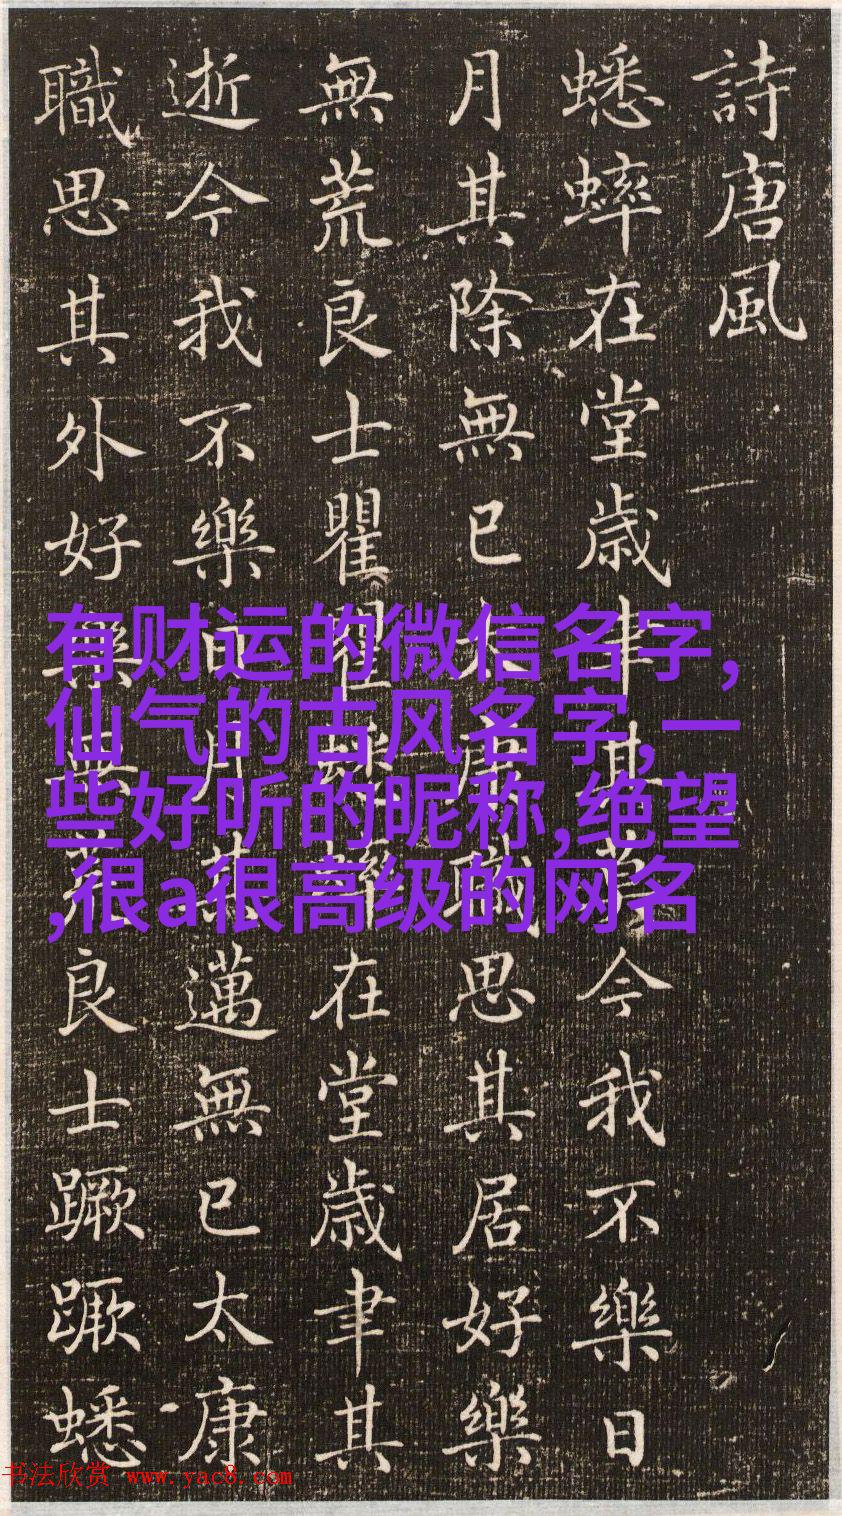 詩唐風
蟋蟀在堂歲聿其莫今我不樂日
月其除無已大康職思其居好樂
無荒良士瞿瞿蟋蟀在堂歲聿其
逝今我不樂日月其邁無已太康
職思其外好樂無荒良士蹶蹶蟋
有财运的微信名字,
仙气的古风名字,一
些好听的昵称,绝望
,很a很高级的网名
书法欣赏 www.yac8.com